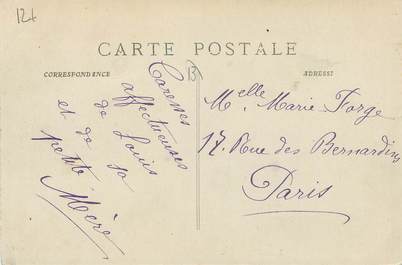 124
CARTE POSTALE
CORRESPONDANCE
ADRESSE
Caresses
affectueuses
de Louis
et de sa
petite Mère
Melle Marie Forge
17 Rue des Bernardins
Paris